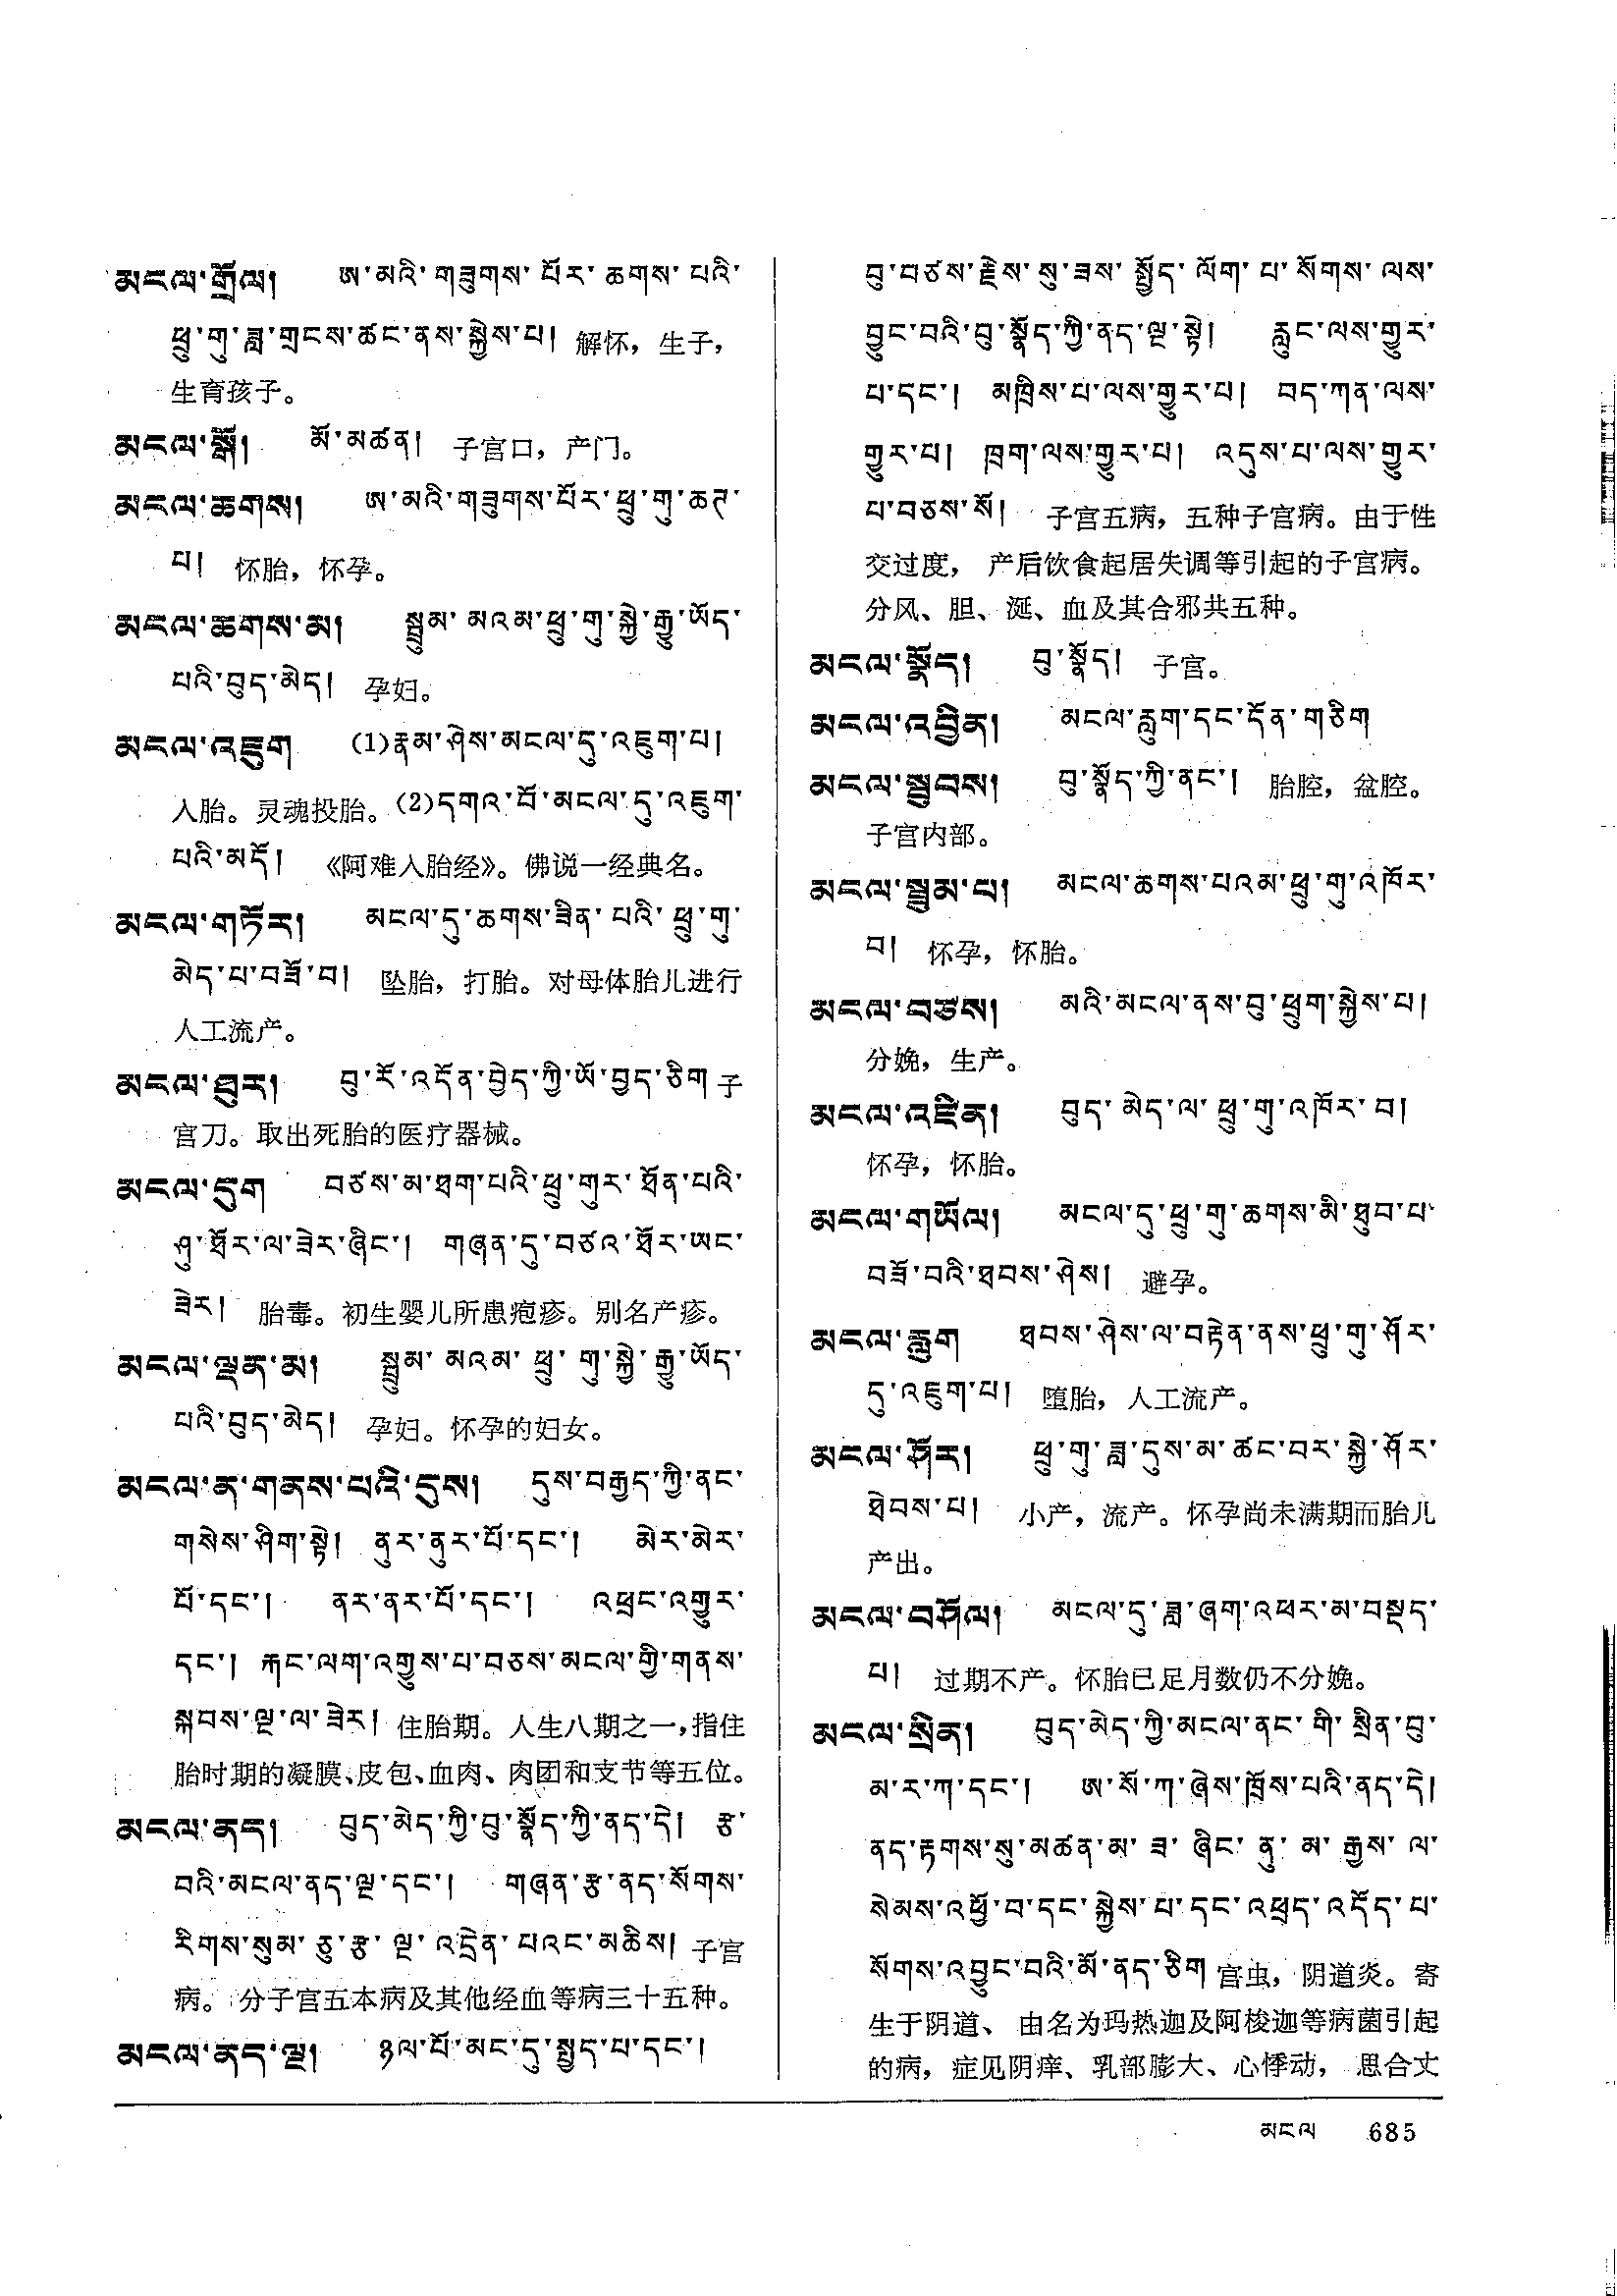 མངལ་གྲོལ། ཨ་མའི་གཟུགས་པོར་ཆགས་པའི་
ཕྲུ་གུ་ཟླ་གྲངས་ཚང་ནས་སྐྱེས་པ། 解怀，生子，
生育孩子。
མངལ་སྒོ། མོ་མཚན། 子宫口，产门。
མངལ་ཆགས། ཨ་མའི་གཟུགས་པོར་ཕྲུ་གུ་ཆད་
པ། 怀胎，怀孕。
མངལ་ཆགས་མ། སྦྲུམ་མའམ་ཕྲུ་གུ་སྐྱེ་རྒྱུ་ཡོད་
པའི་བུད་མེད། 孕妇。
མངལ་འཇུག (1)རྣམ་ཤེས་མངལ་དུ་འཇུག་པ།
入胎。灵魂投胎。(2)དགའ་བོ་མངལ་དུ་འཇུག་
པའི་མདོ། 《阿难入胎经》。佛说一经典名。
མངལ་གཏོར། མངལ་དུ་ཆགས་ཟིན་པའི་ཕྲུ་གུ་
མེད་པ་བཟོ་བ། 坠胎，打胎。对母体胎儿进行
人工流产。
མངལ་ཐུར། བུ་རོ་འདོན་བྱེད་ཀྱི་ཡོ་བྱད་ཅིག 子
宫刀。取出死胎的医疗器械。
མངལ་དུག བཙས་མ་ཐག་པའི་ཕྲུ་གུར་ཐོན་པའི་
ཤུ་ཐོར་ལ་ཟེར་ཞིང་། གཞན་དུ་བཙའ་ཐོར་ཡང་
ཟེར། 胎毒。初生婴儿所患疱疹。别名产疹。
མངལ་ལྡན་མ། སྦྲུམ་མའམ་ཕྲུ་གུ་སྐྱེ་རྒྱུ་ཡོད་
པའི་བུད་མེད། 孕妇。怀孕的妇女。
མངལ་ན་གནས་པའི་དུས། དུས་བརྒྱད་ཀྱི་ནང་
གསེས་ཤིག་སྟེ། ནུར་ནུར་པོ་དང་། མེར་མེར་
པོ་དང་། ནར་ནར་པོ་དང་། འཕྲང་འགྱུར་
དང་། རྐང་ལག་འགྱུས་པ་བཅས་མངལ་གྱི་གནས་
སྐབས་ལྔ་ལ་ཟེར། 住胎期。人生八期之一，指住
胎时期的凝膜、皮包、血肉、肉团和支节等五位。
མངལ་ནད། བུད་མེད་ཀྱི་བུ་སྣོད་ཀྱི་ནད་དེ། རྩ་
བའི་མངལ་ནད་ལྔ་དང་། གཞན་རྩ་ནད་སོགས་
རིགས་སུམ་ཅུ་རྩ་ལྔ་འདྲེན་པའང་མཆིས། 子宫
病。分子宫五本病及其他经血等病三十五种。
མངལ་ནད་ལྔ། ཉལ་པོ་མང་དུ་སྤྱད་པ་དང་།
བུ་བཙས་རྗེས་སུ་ཟས་སྤྱོད་ལོག་པ་སོགས་ལས་
བྱུང་བའི་བུ་སྣོད་ཀྱི་ནད་ལྔ་སྟེ། རླུང་ལས་གྱུར་
པ་དང་། མཁྲིས་པ་ལས་གྱུར་པ། བད་ཀན་ལས་
གྱུར་པ། ཁྲག་ལས་གྱུར་པ། འདུས་པ་ལས་གྱུར་
པ་བཅས་སོ། 子宫五病，五种子宫病。由于性
交过度，产后饮食起居失调等引起的子宫病。
分风、胆、涎、血及其合邪共五种。
མངལ་སྣོད། བུ་སྣོད། 子宫。
མངལ་འབྱིན། མངལ་རླུག་དང་དོན་གཅིག
མངལ་སྦུབས། བུ་སྣོད་ཀྱི་ནང་། 胎腔，盆腔。
子宫内部。
མངལ་སྦྲུམ་པ། མངལ་ཆགས་པའམ་ཕྲུ་གུ་འཁོར་
བ། 怀孕，怀胎。
མངལ་བཙས། མའི་མངལ་ནས་བུ་ཕྲུག་སྐྱེས་པ།
分娩，生产。
མངལ་འཛིན། བུད་མེད་ལ་ཕྲུ་གུ་འཁོར་བ།
怀孕，怀胎。
མངལ་གཡོལ། མངལ་དུ་ཕྲུ་གུ་ཆགས་མི་ཐུབ་པ་
བཟོ་བའི་ཐབས་ཤེས། 避孕。
མངལ་རླུག ཐབས་ཤེས་ལ་བརྟེན་ནས་ཕྲུ་གུ་ཤོར་
དུ་འཇུག་པ། 堕胎，人工流产。
མངལ་ཤོར། ཕྲུ་གུ་ཟླ་དུས་མ་ཚང་བར་སྐྱེ་ཤོར་
ཐེབས་པ། 小产，流产。怀孕尚未满期而胎儿
产出。
མངལ་བཤོལ། མངལ་དུ་ཟླ་ཞག་འཕར་མ་བསྡད་
པ། 过期不产。怀胎已足月数仍不分娩。
མངལ་སྲིན། བུད་མེད་ཀྱི་མངལ་ནང་གི་སྲིན་བུ་
མ་ར་ཀ་དང་། ཨ་སོ་ཀ་ཞེས་ཁྲོས་པའི་ནད་དེ།
ནད་རྟགས་སུ་མཚན་མ་ཟ་ཞིང་ནུ་མ་རྒྱས་ལ་
སེམས་འཕྱོ་བ་དང་སྐྱེས་པ་དང་འཕྲད་འདོད་པ་
སོགས་འབྱུང་བའི་མོ་ནད་ཅིག 宫虫，阴道炎。寄
生于阴道、由名为玛热迦及阿梭迦等病菌引起
的病，症见阴痒、乳部膨大、心悸动，思合丈
མངལ 685